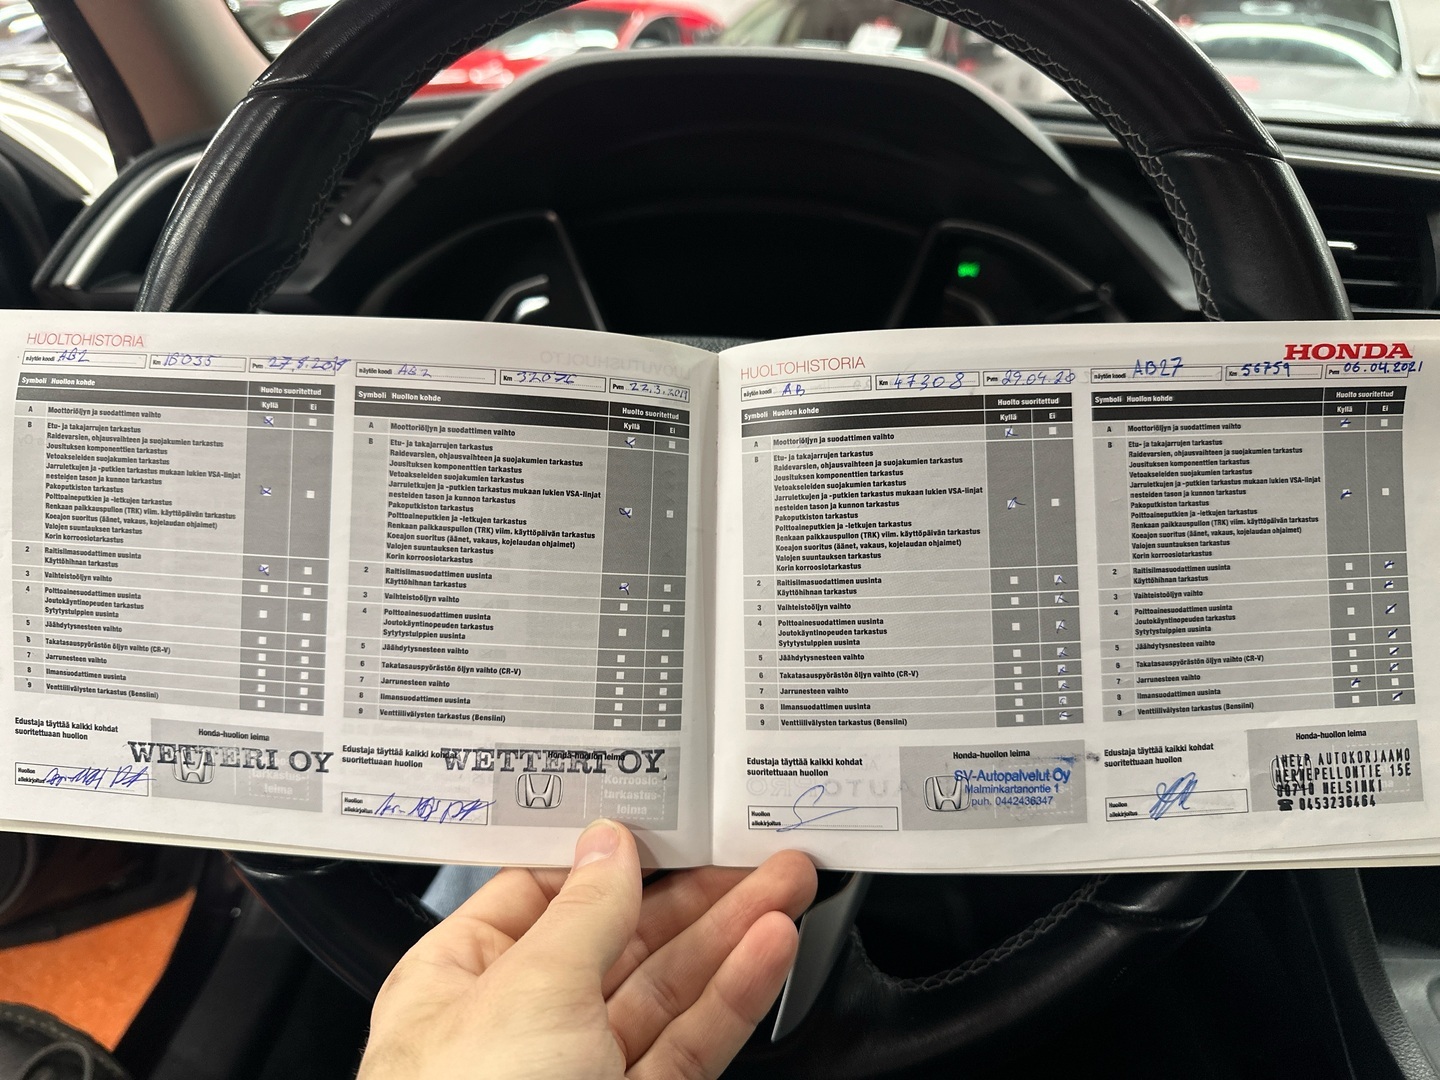 HUOLTOHISTORIA
näytön koodi AB2 Km 18035 Pvm
Symboli Huollon kohde Huolto suoritettu
Kyllä Ei
A Moottoriöljyn ja suodattimen vaihto
B Etu- ja takajarrujen tarkastus
Raidevarsien, ohjausvaihteen ja suojakumien tarkastus
Jousituksen komponenttien tarkastus
Vetoakseleiden suojakumien tarkastus
Jarruletkujen ja -putkien tarkastus mukaan lukien VSA-linjat
nesteiden tason ja kunnon tarkastus
Pakoputkiston tarkastus
Polttoaineputkien ja -letkujen tarkastus
Renkaan paikkauspullon (TRK) viim. käyttöpäivän tarkastus
Koeajon suoritus (äänet, vakaus, kojelaudan ohjaimet)
Valojen suuntauksen tarkastus
Korin korroosiotarkastus
2 Raitisilmasuodattimen uusinta
Käyttöhihnan tarkastus
3 Vaihteistoöljyn vaihto
4 Polttoainesuodattimen uusinta
Joutokäyntinopeuden tarkastus
Sytytystulppien uusinta
5 Jäähdytysnesteen vaihto
6 Takatasauspyörästön öljyn vaihto (CR-V)
7 Jarrunesteen vaihto
8 Ilmansuodattimen uusinta
9 Venttiilivälysten tarkastus (Bensiini)
Edustaja täyttää kaikki kohdat
suoritettuaan huollon
Honda-huollon leima
WETTERI OY
Huollon
allekirjoitus
näytön koodi AB2 Km 32076 Pvm 22.3.2019
Symboli Huollon kohde Huolto suoritettu
Kyllä Ei
A Moottoriöljyn ja suodattimen vaihto
B Etu- ja takajarrujen tarkastus
Raidevarsien, ohjausvaihteen ja suojakumien tarkastus
Jousituksen komponenttien tarkastus
Vetoakseleiden suojakumien tarkastus
Jarruletkujen ja -putkien tarkastus mukaan lukien VSA-linjat
nesteiden tason ja kunnon tarkastus
Pakoputkiston tarkastus
Polttoaineputkien ja -letkujen tarkastus
Renkaan paikkauspullon (TRK) viim. käyttöpäivän tarkastus
Koeajon suoritus (äänet, vakaus, kojelaudan ohjaimet)
Valojen suuntauksen tarkastus
Korin korroosiotarkastus
2 Raitisilmasuodattimen uusinta
Käyttöhihnan tarkastus
3 Vaihteistoöljyn vaihto
4 Polttoainesuodattimen uusinta
Joutokäyntinopeuden tarkastus
Sytytystulppien uusinta
5 Jäähdytysnesteen vaihto
6 Takatasauspyörästön öljyn vaihto (CR-V)
7 Jarrunesteen vaihto
8 Ilmansuodattimen uusinta
9 Venttiilivälysten tarkastus (Bensiini)
Edustaja täyttää kaikki kohdat
suoritettuaan huollon
Honda-huollon leima
WETTERI OY
Huollon
allekirjoitus
HUOLTOHISTORIA
näytön koodi AB Km 47308 Pvm 29.04.20
Symboli Huollon kohde Huolto suoritettu
Kyllä Ei
A Moottoriöljyn ja suodattimen vaihto
B Etu- ja takajarrujen tarkastus
Raidevarsien, ohjausvaihteen ja suojakumien tarkastus
Jousituksen komponenttien tarkastus
Vetoakseleiden suojakumien tarkastus
Jarruletkujen ja -putkien tarkastus mukaan lukien VSA-linjat
nesteiden tason ja kunnon tarkastus
Pakoputkiston tarkastus
Polttoaineputkien ja -letkujen tarkastus
Renkaan paikkauspullon (TRK) viim. käyttöpäivän tarkastus
Koeajon suoritus (äänet, vakaus, kojelaudan ohjaimet)
Valojen suuntauksen tarkastus
Korin korroosiotarkastus
2 Raitisilmasuodattimen uusinta
Käyttöhihnan tarkastus
3 Vaihteistoöljyn vaihto
4 Polttoainesuodattimen uusinta
Joutokäyntinopeuden tarkastus
Sytytystulppien uusinta
5 Jäähdytysnesteen vaihto
6 Takatasauspyörästön öljyn vaihto (CR-V)
7 Jarrunesteen vaihto
8 Ilmansuodattimen uusinta
9 Venttiilivälysten tarkastus (Bensiini)
Edustaja täyttää kaikki kohdat
suoritettuaan huollon
Honda-huollon leima
SV-Autopalvelut Oy
Malminkartanontie 1
puh. 0442436347
Huollon
allekirjoitus
HONDA
näytön koodi AB27 Km 56759 Pvm 06.04.2021
Symboli Huollon kohde Huolto suoritettu
Kyllä Ei
A Moottoriöljyn ja suodattimen vaihto
B Etu- ja takajarrujen tarkastus
Raidevarsien, ohjausvaihteen ja suojakumien tarkastus
Jousituksen komponenttien tarkastus
Vetoakseleiden suojakumien tarkastus
Jarruletkujen ja -putkien tarkastus mukaan lukien VSA-linjat
nesteiden tason ja kunnon tarkastus
Pakoputkiston tarkastus
Polttoaineputkien ja -letkujen tarkastus
Renkaan paikkauspullon (TRK) viim. käyttöpäivän tarkastus
Koeajon suoritus (äänet, vakaus, kojelaudan ohjaimet)
Valojen suuntauksen tarkastus
Korin korroosiotarkastus
2 Raitisilmasuodattimen uusinta
Käyttöhihnan tarkastus
3 Vaihteistoöljyn vaihto
4 Polttoainesuodattimen uusinta
Joutokäyntinopeuden tarkastus
Sytytystulppien uusinta
5 Jäähdytysnesteen vaihto
6 Takatasauspyörästön öljyn vaihto (CR-V)
7 Jarrunesteen vaihto
8 Ilmansuodattimen uusinta
9 Venttiilivälysten tarkastus (Bensiini)
Edustaja täyttää kaikki kohdat
suoritettuaan huollon
Honda-huollon leima
IHELP AUTOKORJAAMO
HERNEPELLONTIE 15E
00710 HELSINKI
☎ 0453236464
Huollon
allekirjoitus